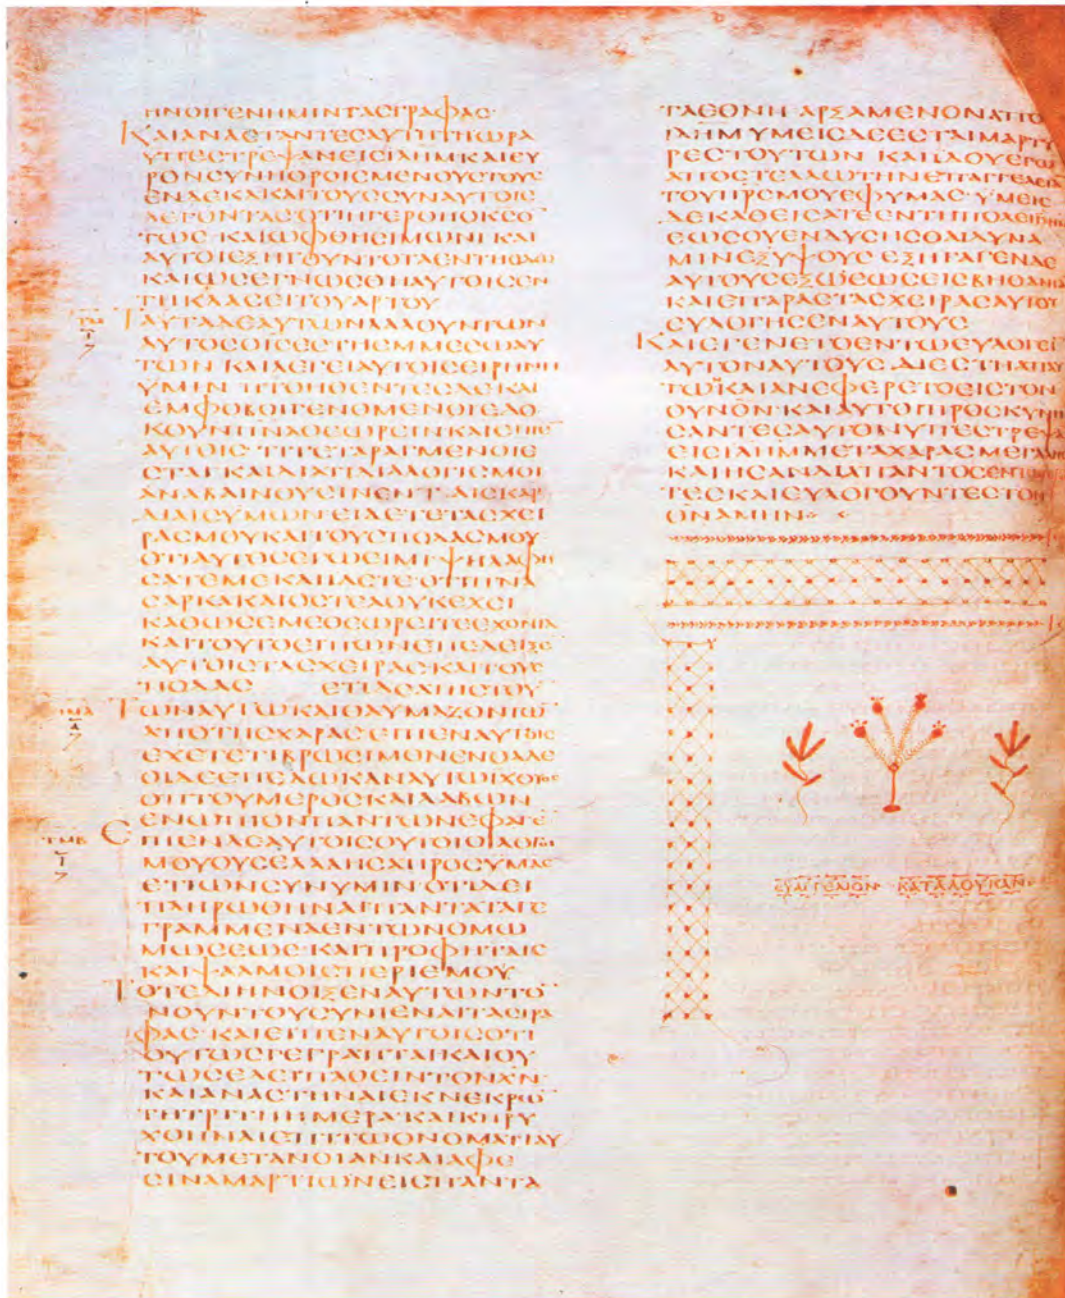 ΗΝΟΙΓΕΝΗΜΙΝΤΑϹΓΡΑΦΑϹ·
ΚΑΙΑΝΑϹΤΑΝΤΕϹΑΥΤΗΤΗΩΡΑ
ΥΠΕϹΤΡΕΨΑΝΕΙϹΙΛΗΜΚΑΙΕΥ
ΡΟΝϹΥΝΗΘΡΟΙϹΜΕΝΟΥϹΤΟΥϹ
ΕΝΔΕΚΑΚΑΙΤΟΥϹϹΥΝΑΥΤΟΙϹ
ΛΕΓΟΝΤΑϹΟΤΙΗΓΕΡΘΗΟΚϹΟ̅
ΤΩϹΚΑΙΩΦΘΗϹΙΜΩΝΙΚΑΙ
ΑΥΤΟΙΕΞΗΓΟΥΝΤΟΤΑΕΝΤΗΟΔΩ
ΚΑΙΩϹΕΓΝΩϹΘΗΑΥΤΟΙϹΕΝ
ΤΗΚΛΑϹΕΙΤΟΥΑΡΤΟΥ
ΤΑΥΤΑΔΕΑΥΤΩΝΛΑΛΟΥΝΤΩΝ
ΑΥΤΟϹΟΙϹΕϹΤΗΕΜΜΕϹΩΑΥ
ΤΩΝΚΑΙΛΕΓΕΙΑΥΤΟΙϹΕΙΡΗΝΗ
ΥΜΙΝΠΤΟΗΘΕΝΤΕϹΔΕΚΑΙ
ΕΜΦΟΒΟΙΓΕΝΟΜΕΝΟΙΕΔΟ
ΚΟΥΝΠΝΑΘΕΩΡΕΙΝΚΑΙΕΙΠΕ̅
ΑΥΤΟΙϹΤΙΤΕΤΑΡΑΓΜΕΝΟΙΕ
ϹΤΑΙΚΑΙΔΙΑΤΙΔΙΑΛΟΓΙϹΜΟΙ
ΑΝΑΒΑΙΝΟΥϹΙΝΕΝΤΑΙϹΚΑΡ
ΔΙΑΙϹΥΜΩΝΕΙΔΕΤΕΤΑϹΧΕΙ
ΡΑϹΜΟΥΚΑΙΤΟΥϹΠΟΔΑϹΜΟΥ
ΟΤΙΑΥΤΟϹΕΓΩΕΙΜΙΨΗΛΑΦΗ
ϹΑΤΕΜΕΚΑΙΙΔΕΤΕΟΤΙΠΝΑ
ϹΑΡΚΑΚΑΙΟϹΤΕΑΟΥΚΕΧΕΙ
ΚΑΘΩϹΕΜΕΘΕΩΡΕΙΤΕΕΧΟΝΤΑ
ΚΑΙΤΟΥΤΟΕΙΠΩΝΕΠΕΔΕΙΞΕ
ΑΥΤΟΙϹΤΑϹΧΕΙΡΑϹΚΑΙΤΟΥϹ
ΠΟΔΑϹ ΕΤΙΔΕΑΠΙϹΤΟΥ
ΤΩΝΑΥΤΩΚΑΙΘΑΥΜΑΖΟΝΤΩ̅
ΑΠΟΤΗϹΧΑΡΑϹΕΙΠΕΝΑΥΤΟΙϹ
ΕΧΕΤΕΤΙΒΡΩϹΙΜΟΝΕΝΘΑΔΕ
ΟΙΔΕΕΠΕΔΩΚΑΝΑΥΤΩΙΧΘΥΟϹ
ΟΠΤΟΥΜΕΡΟϹΚΑΙΛΑΒΩΝ
ΕΝΩΠΙΟΝΠΑΝΤΩΝΕΦΑΓΕ̅
ΕΙΠΕΝΔΕΑΥΤΟΙϹΟΥΤΟΙΟΙΛΟΓΟΙ
ΜΟΥΟΥϹΕΛΑΛΗϹΑΠΡΟϹΥΜΑϹ
ΕΤΙΩΝϹΥΝΥΜΙΝ·ΟΤΙΔΕΙ
ΠΛΗΡΩΘΗΝΑΙΠΑΝΤΑΤΑΓΕ
ΓΡΑΜΜΕΝΑΕΝΤΩΝΟΜΩ
ΜΩϹΕΩϹ·ΚΑΙΠΡΟΦΗΤΑΙϹ
ΚΑΙΨΑΛΜΟΙϹΠΕΡΙΕΜΟΥ
ΤΟΤΕΔΙΗΝΟΙΞΕΝΑΥΤΩΝΤΟ̅
ΝΟΥΝΤΟΥϹΥΝΙΕΝΑΙΤΑϹΓΡΑ
ΦΑϹ·ΚΑΙΕΙΠΕΝΑΥΤΟΙϹΟΤΙ
ΟΥΤΩϹΓΕΓΡΑΠΤΑΙΚΑΙΟΥ
ΤΩϹΕΔΕΙΠΑΘΕΙΝΤΟΝΧΝ·
ΚΑΙΑΝΑϹΤΗΝΑΙΕΚΝΕΚΡΩ̅
ΤΗΤΡΙΤΗΗΜΕΡΑ·ΚΑΙΚΗΡΥ
ΧΘΗΝΑΙΕΠΙΤΩΟΝΟΜΑΤΙΑΥ
ΤΟΥΜΕΤΑΝΟΙΑΝΚΑΙΑΦΕ
ϹΙΝΑΜΑΡΤΙΩΝΕΙϹΠΑΝΤΑ
ΤΜΑ
ΤΜΒ
ΤΑΕΘΝΗΑΡΞΑΜΕΝΟΝΑΠΟ
ΙΛΗΜΥΜΕΙϹΔΕΕϹΤΑΙΜΑΡΤΥ
ΡΕϹΤΟΥΤΩΝΚΑΙΙΔΟΥΕΓΩ
ΑΠΟϹΤΕΛΛΩΤΗΝΕΠΑΓΓΕΛΕΙΑ̅
ΤΟΥΠΡϹΜΟΥΕΦΥΜΑϹ·ΥΜΕΙϹ
ΔΕΚΑΘΕΙϹΑΤΕΕΝΤΗΠΟΛΕΙΙΛΗΜ
ΕΩϹΟΥΕΝΔΥϹΗϹΘΑΙΔΥΝΑ
ΜΙΝΕΞΥΨΟΥϹΕΞΗΓΑΓΕΝΔΕ
ΑΥΤΟΥϹΕΞΩΕΩϹΕΙϹΒΗΘΑΝΙΑ
ΚΑΙΕΠΑΡΑϹΤΑϹΧΕΙΡΑϹΑΥΤΟΥ
ΕΥΛΟΓΗϹΕΝΑΥΤΟΥϹ
ΚΑΙΕΓΕΝΕΤΟΕΝΤΩΕΥΛΟΓΕΙ̅
ΑΥΤΟΝΑΥΤΟΥϹΔΙΕϹΤΗΑΠΑΥ
ΤΩ̅ΚΑΙΑΝΕΦΕΡΕΤΟΕΙϹΤΟΝ
ΟΥΝΟΝ·ΚΑΙΑΥΤΟΙΠΡΟϹΚΥΝΗ
ϹΑΝΤΕϹΑΥΤΟΝΥΠΕϹΤΡΕΨΑ̅
ΕΙϹΙΛΗΜΜΕΤΑΧΑΡΑϹΜΕΓΑΛΗϹ
ΚΑΙΗϹΑΝΔΙΑΠΑΝΤΟϹΕΝΤΩΙΕΡΩ
ΤΕϹΚΑΙΕΥΛΟΓΟΥΝΤΕϹΤΟΝ
ΘΝΑΜΗΝ
ΕΥΑΓΓΕΛΙΟΝ ΚΑΤΑΛΟΥΚΑΝ